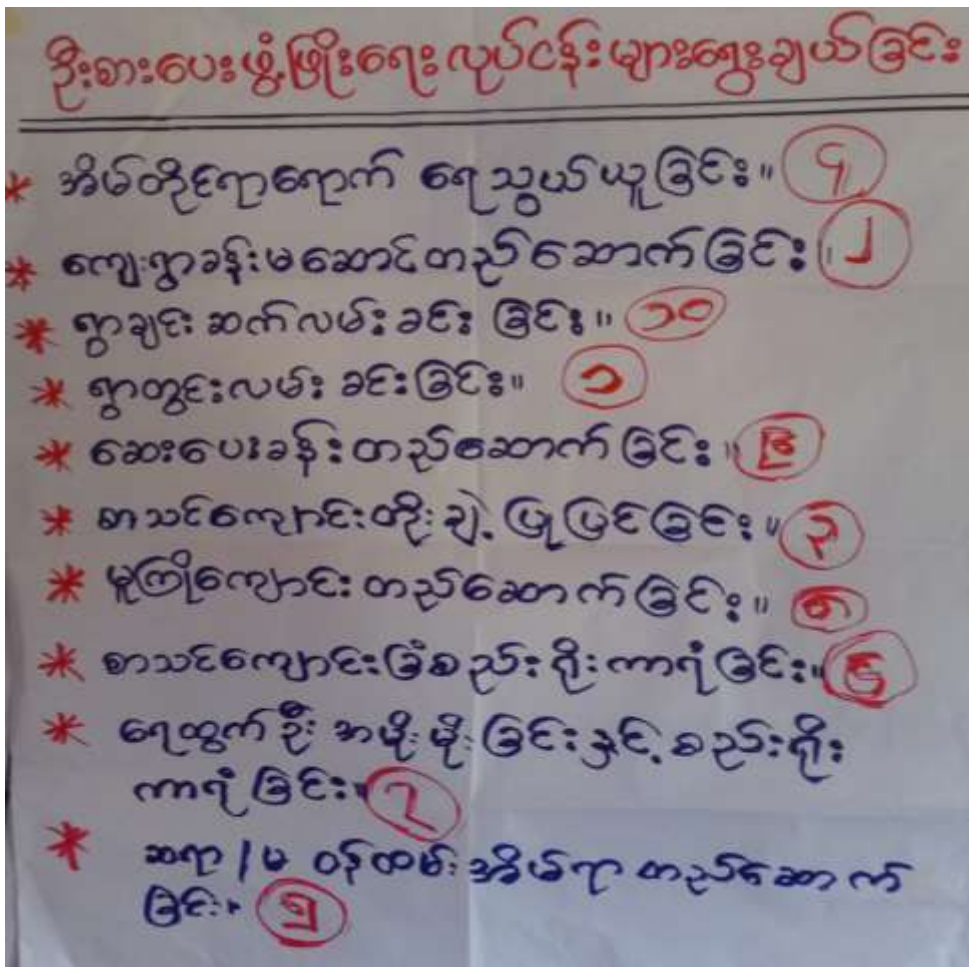 ဦးစားပေးဖွံ့ဖြိုးရေးလုပ်ငန်းများရွေးချယ်ခြင်း
* အိမ်တိုင်ရာရောက် ရေသွယ်ယူခြင်း။ ၄
* ကျေးရွာခန်းမဆောင်တည်ဆောက်ခြင်း။ ၂
* ရွာချင်းဆက်လမ်းခင်းခြင်း။ ၁၀
* ရွာတွင်းလမ်းခင်းခြင်း။ ၁
* ဆေးပေးခန်းတည်ဆောက်ခြင်း။
* စာသင်ကျောင်းတိုးချဲ့ပြုပြင်ခြင်း။ ၃
* မူကြိုကျောင်းတည်ဆောက်ခြင်း။ ၈
* စာသင်ကျောင်းခြံစည်းရိုးကာရံခြင်း။ ၆
* ရေထွက်ဦးအမိုးမိုးခြင်းနှင့်စည်းရိုး
ကာရံခြင်း။ ၇
* ဆရာ/မ ဝန်ထမ်းအိမ်ရာတည်ဆောက်
ခြင်း။ ၅